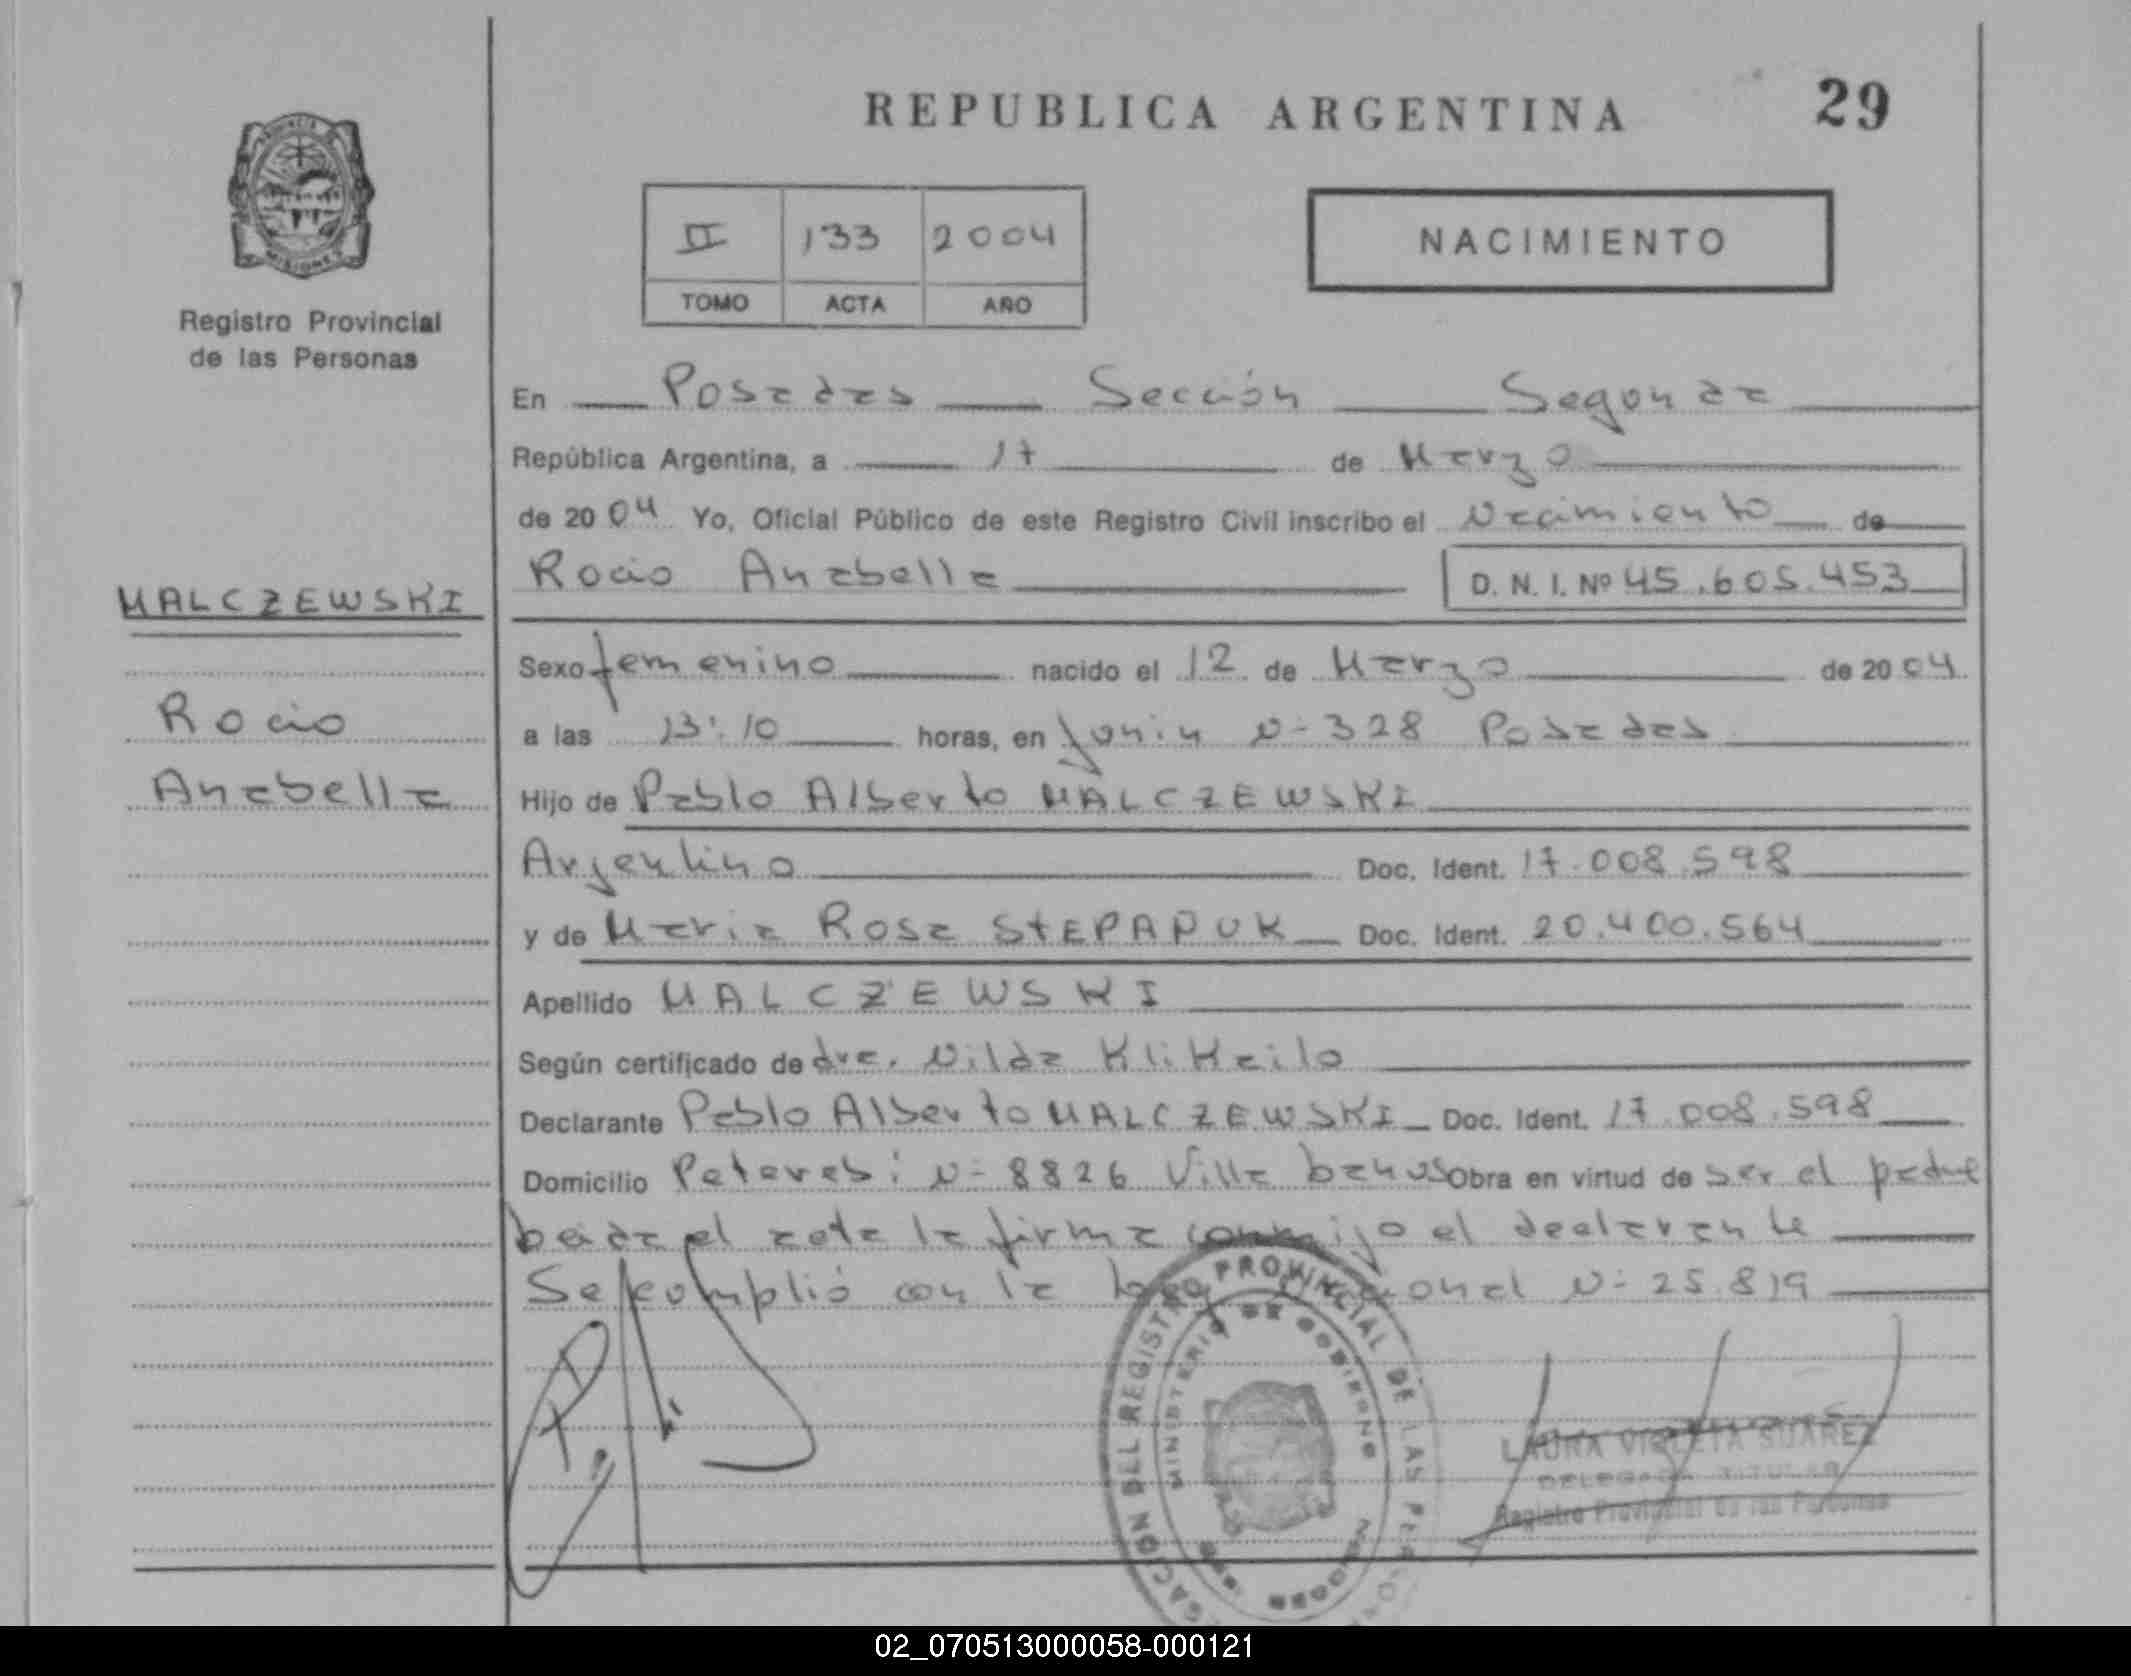 REPUBLICA ARGENTINA
29
PROVINCIA
MISIONES
Registro Provincial
de las Personas
II 133 2004
TOMO ACTA AÑO
NACIMIENTO
En Posadas Sección Segunda
República Argentina, a 17 de Marzo
de 2004 Yo, Oficial Público de este Registro Civil inscribo el nacimiento de
Rocio Anabella D. N. I. Nº 45.605.453
MALCZEWSKI
Rocio
Anabella
Sexo femenino nacido el 12 de Marzo de 2004
a las 13:10 horas, en Junin N- 328 Posadas
Hijo de Pablo Alberto MALCZEWSKI
Argentino Doc. Ident. 17.008.598
y de Maria Rosa Doc. Ident. 20.400.564
Apellido MALCZEWSKI
Según certificado de dra. Nilda
Declarante Pablo Alberto MALCZEWSKI Doc. Ident. 17.008.598
Domicilio N- 8826 Villa Obra en virtud de ser el padre
el acta la firma conmigo el declarante
Se cumplió con la N- 25.819
REGISTRO PROVINCIAL DE LAS
MINISTERIO DE GOBIERNO
LAURA VIOLETA SUAREZ
DELEGADA TITULAR
Registro Provincial de las Personas
02_070513000058-000121